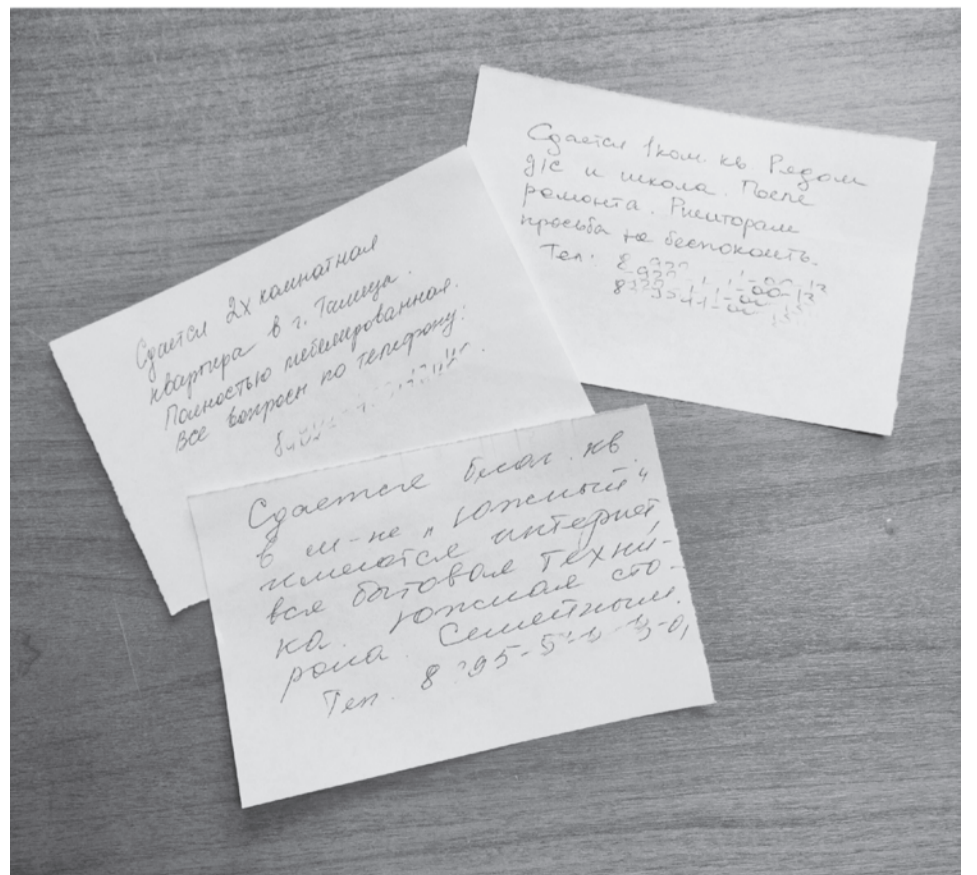 Сдается 2х комнатная
квартира в г. Талица.
Полностью мебелированная.
Все вопросы по телефону:
Сдается 1ком. кв. Рядом
д/с и школа. После
ремонта. Риелторам
просьба не беспокоить.
Тел.
Сдается благ. кв.
в м-не "Южный"
имеются интернет,
вся бытовая техни-
ка. Южная сто-
рона. Семейным.
Тел. 8